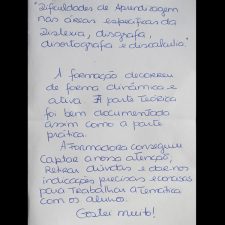 "Dificuldades de Aprendizagem
nas áreas específicas da
Dislexia, disgrafia,
disortografia e discalculia."
A formação decorreu
de forma dinâmica e
ativa. A parte Teórica
foi bem documentada
assim como a parte
prática.
A Formadora conseguiu
captar a nossa atenção,
Retirar dúvidas e dar-nos
indicações precisas e
para Trabalhar a Temática
com os alunos.
Gostei muito!